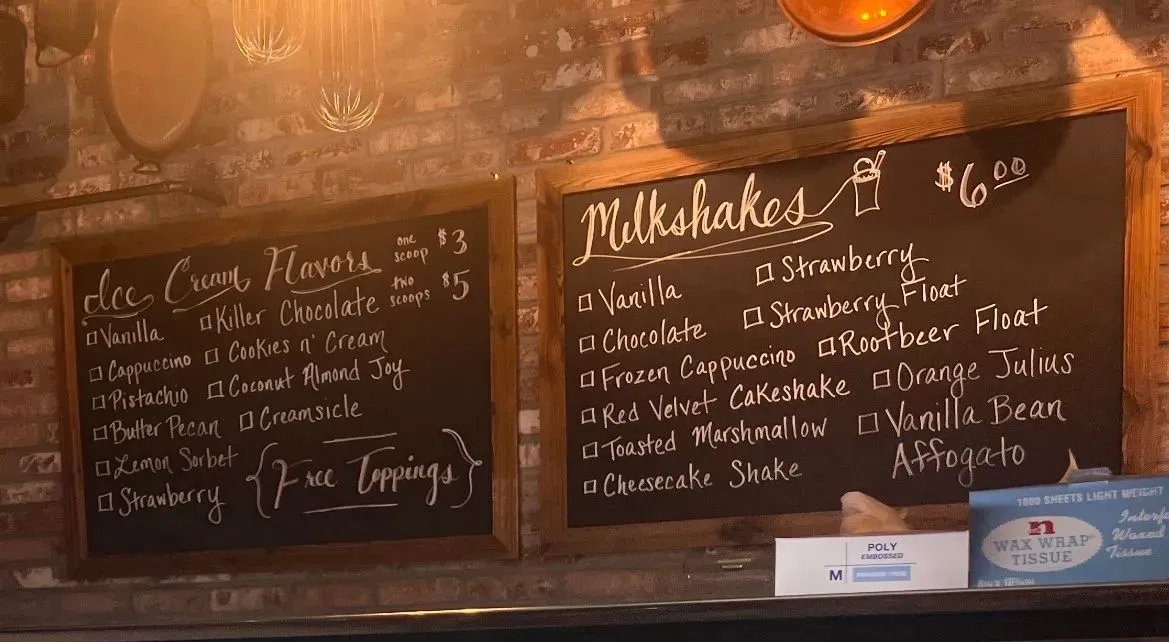 Ice Cream Flavors
one scoop $3
two scoops $5
Vanilla
Killer Chocolate
Cappuccino
Cookies n' Cream
Pistachio
Coconut Almond Joy
Butter Pecan
Creamsicle
Lemon Sorbet
Strawberry
{Free Toppings}
Milkshakes
$6.00
Vanilla
Strawberry
Chocolate
Strawberry Float
Frozen Cappuccino
Rootbeer Float
Red Velvet Cakeshake
Orange Julius
Toasted Marshmallow
Vanilla Bean
Affogato
Cheesecake Shake
POLY
EMBOSSED
M
1000 SHEETS LIGHT WEIGHT
n
WAX WRAP
TISSUE
Waxed
Tissue